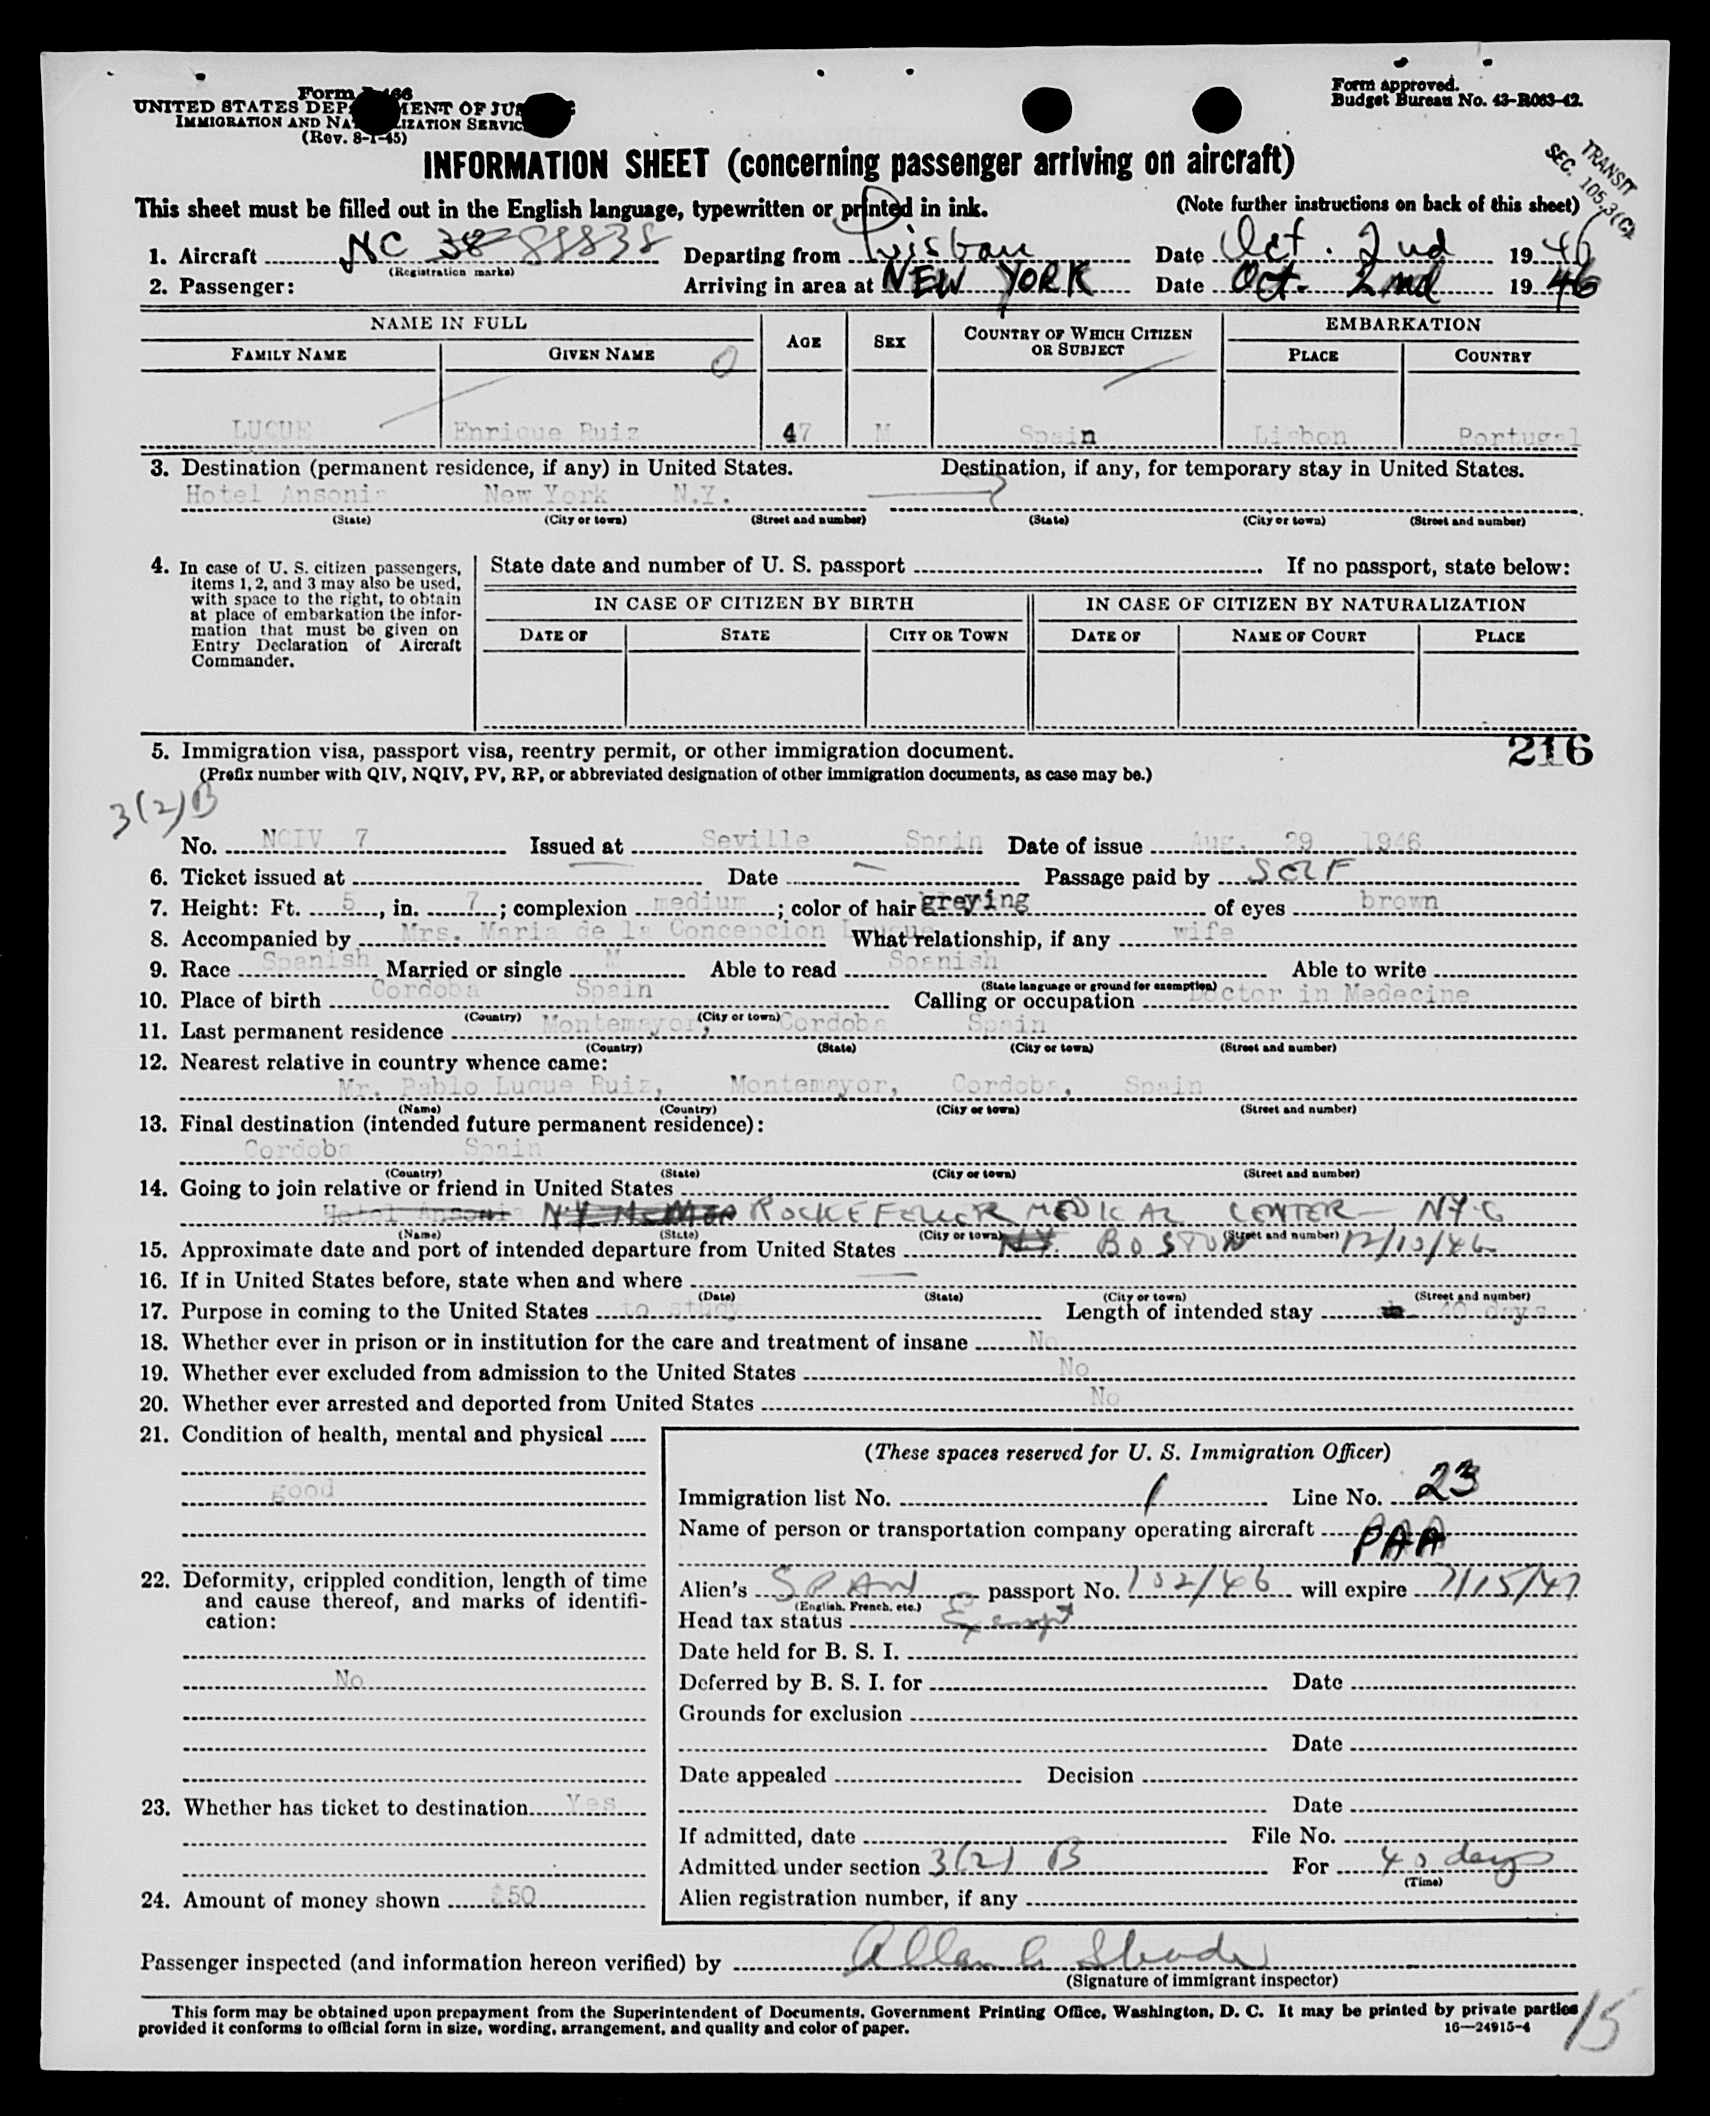 Form I-466
UNITED STATES DEPARTMENT OF JUSTICE
IMMIGRATION AND NATURALIZATION SERVICE
(Rev. 8-1-45)
Form approved.
Budget Bureau No. 43-R063-42.
TRANSIT
SEC. 105.3(C)
INFORMATION SHEET (concerning passenger arriving on aircraft)
This sheet must be filled out in the English language, typewritten or printed in ink. (Note further instructions on back of this sheet)
1. Aircraft NC 38 88838 Departing from Lisbon Date Oct. 2nd 1946
(Registration marks)
2. Passenger: Arriving in area at NEW YORK Date Oct. 2nd 1946
NAME IN FULL AGE SEX COUNTRY OF WHICH CITIZEN OR SUBJECT EMBARKATION
FAMILY NAME GIVEN NAME PLACE COUNTRY
LUQUE Enrique Ruiz 47 M Spain Lisbon Portugal
3. Destination (permanent residence, if any) in United States. Destination, if any, for temporary stay in United States.
Hotel Ansonia New York N.Y.
(State) (City or town) (Street and number) (State) (City or town) (Street and number)
4. In case of U. S. citizen passengers, items 1, 2, and 3 may also be used, with space to the right, to obtain at place of embarkation the information that must be given on Entry Declaration of Aircraft Commander.
State date and number of U. S. passport If no passport, state below:
IN CASE OF CITIZEN BY BIRTH IN CASE OF CITIZEN BY NATURALIZATION
DATE OF STATE CITY OR TOWN DATE OF NAME OF COURT PLACE
216
5. Immigration visa, passport visa, reentry permit, or other immigration document.
(Prefix number with QIV, NQIV, PV, RP, or abbreviated designation of other immigration documents, as case may be.)
3(2)B
No. NQIV 7 Issued at Seville Spain Date of issue Aug. 29 1946
6. Ticket issued at Date Passage paid by SELF
7. Height: Ft. 5, in. 7; complexion medium; color of hair greying of eyes brown
8. Accompanied by Mrs. Maria de la Concepcion Luque What relationship, if any wife
9. Race Spanish Married or single M Able to read Spanish Able to write
(State language or ground for exemption)
10. Place of birth Cordoba Spain Calling or occupation Doctor in Medecine
(Country) (City or town)
11. Last permanent residence Montemayor, Cordoba Spain
(Country) (State) (City or town) (Street and number)
12. Nearest relative in country whence came:
Mr. Pablo Luque Ruiz, Montemayor, Cordoba, Spain
(Name) (Country) (City or town) (Street and number)
13. Final destination (intended future permanent residence):
Cordoba Spain
(Country) (State) (City or town) (Street and number)
14. Going to join relative or friend in United States
Hotel Ansonia ROCKEFELLER MEDICAL CENTER - NYC
(Name) (State) (City or town) (Street and number)
15. Approximate date and port of intended departure from United States N.Y. BOSTON 12/10/46
16. If in United States before, state when and where
(Date) (State) (City or town) (Street and number)
17. Purpose in coming to the United States to study Length of intended stay 40 days
18. Whether ever in prison or in institution for the care and treatment of insane No
19. Whether ever excluded from admission to the United States No
20. Whether ever arrested and deported from United States No
21. Condition of health, mental and physical
good
22. Deformity, crippled condition, length of time and cause thereof, and marks of identification:
No
23. Whether has ticket to destination Yes
24. Amount of money shown $50
(These spaces reserved for U. S. Immigration Officer)
Immigration list No. 1 Line No. 23
Name of person or transportation company operating aircraft PAA
Alien's SPAN passport No. 102/46 will expire 7/15/47
(English, French, etc.)
Head tax status Exempt
Date held for B. S. I.
Deferred by B. S. I. for Date
Grounds for exclusion
Date
Date appealed Decision
Date
If admitted, date File No.
Admitted under section 3(2) B For 40 days
(Time)
Alien registration number, if any
Passenger inspected (and information hereon verified) by
(Signature of immigrant inspector)
This form may be obtained upon prepayment from the Superintendent of Documents, Government Printing Office, Washington, D. C. It may be printed by private parties
provided it conforms to official form in size, wording, arrangement, and quality and color of paper. 16—24915-4
15